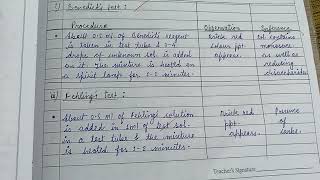 i) Benedict's test :
Procedure Observation Inference
• About 0.5 ml of Benedict's reagent Brick red Sol. contains
is taken in test tube & 3-4 colour ppt. monosacc.
drops of unknown sol. is added appears. as well as
on it. The mixture is heated on reducing
a spirit lamp for 1-2 minutes. disaccharides
ii) Fehling's Test :
• About 0.5 ml of Fehling's solution Brick red Presence
is added in test sol. ppt. of
in a test tube & the mixture appears.
is heated for 1-2 minutes.
Teacher's Signature